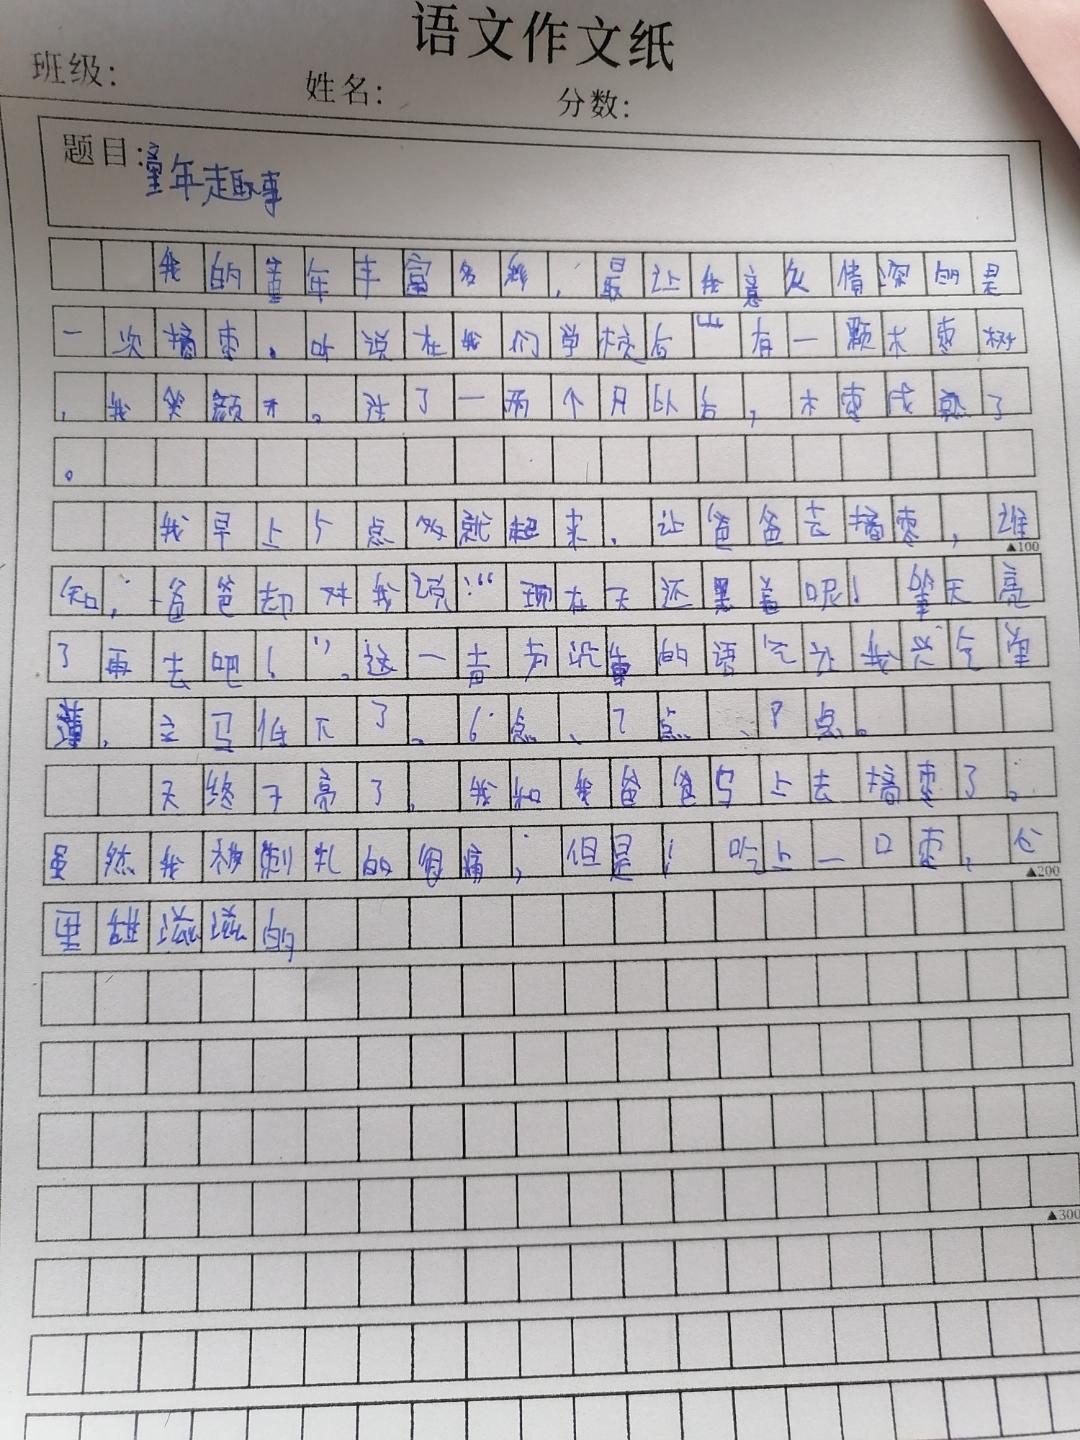 语文作文纸
班级: 姓名: 分数:
题目:童年趣事
我的童年丰富多彩,最让我意久情深的是
一次摘枣。听说在我们学校后山有一颗木枣树
,我笑颜开。过了一两个月以后,木枣成熟了
。
我早上5点多就起来,让爸爸去摘枣,谁
知,爸爸却对我说:“现在天还黑着呢!等天亮
了再去吧!”这一声声沉重的语气让我兴气
薄,立马低下了。6点、7点、8点。
天终于亮了。我和我爸爸马上去摘枣了。
虽然我被刺扎的很痛,但是!吃上一口枣,心
里甜滋滋的
▲100
▲200
▲300